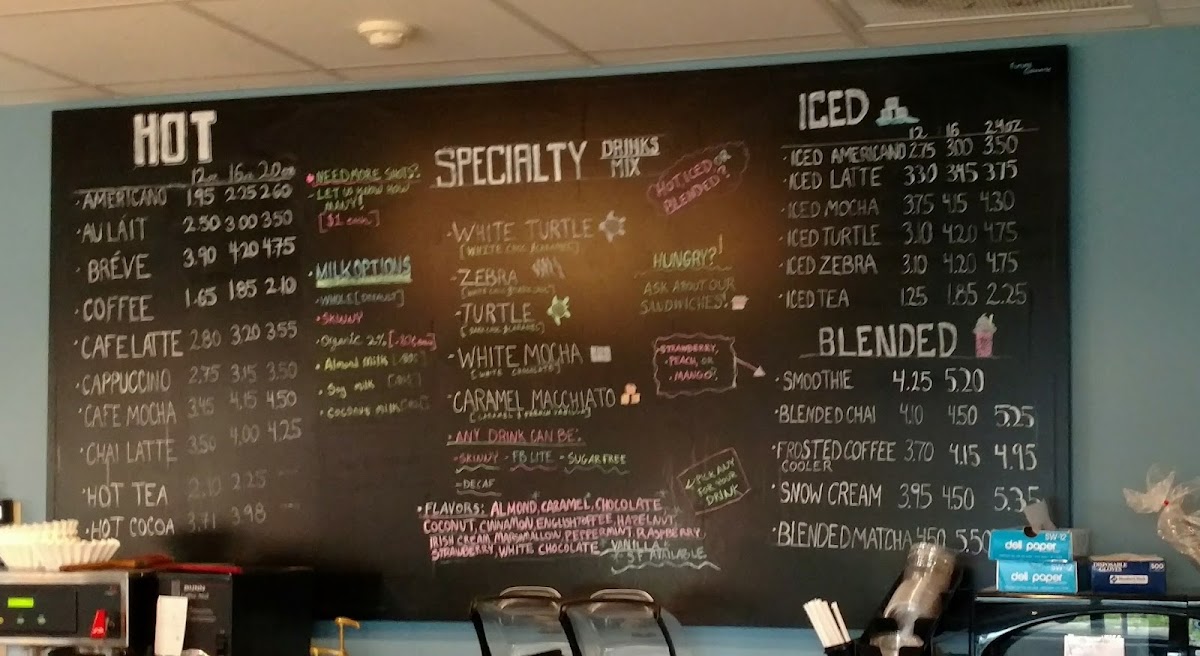 HOT
12oz 16oz 20oz
·AMERICANO 1.95 2.25 2.60
·AU LÁIT 2.50 3.00 3.50
·BRÉVE 3.90 4.20 4.75
·COFFEE 1.65 1.85 2.10
·CAFE LATTE 2.80 3.20 3.55
·CAPPUCCINO 2.75 3.15 3.50
·CAFE MOCHA 3.45 4.15 4.50
·CHAI LATTE 3.50 4.00 4.25
·HOT TEA 2.10 2.25
·HOT COCOA 3.71 3.98
·NEED MORE SHOTS?
-LET US KNOW HOW
MANY!
[$1 each]
·MILK OPTIONS
-WHOLE [DEFAULT]
·SKINNY
·Organic 2%
·Almond milk
·Soy milk
·Coconut milk
SPECIALTY DRINKS
MIX
HOT, ICED OR
BLENDED?
·WHITE TURTLE
[WHITE CHOC & CARAMEL]
·ZEBRA
·TURTLE
[DARK CHOC & CARAMEL]
·WHITE MOCHA
[WHITE CHOCOLATE]
·CARAMEL MACCHIATO
[CARAMEL & FRENCH VANILLA]
HUNGRY?!
ASK ABOUT OUR
SANDWICHES!
·STRAWBERRY,
·PEACH, OR
·MANGO?
·ANY DRINK CAN BE:
-SKINNY -FB LITE -SUGAR FREE
-DECAF
PICK ANY
FOR YOUR
DRINK
·FLAVORS: ALMOND, CARAMEL, CHOCOLATE,
COCONUT, CINNAMON, ENGLISH TOFFEE, HAZELNUT,
IRISH CREAM, MARSHMALLOW, PEPPERMINT, RASPBERRY,
STRAWBERRY, WHITE CHOCOLATE, VANILLA
* SF AVAILABLE
ICED
12 16 24oz
·ICED AMERICANO 2.75 3.00 3.50
·ICED LATTE 3.30 3.45 3.75
·ICED MOCHA 3.75 4.15 4.30
·ICED TURTLE 3.10 4.20 4.75
·ICED ZEBRA 3.10 4.20 4.75
·ICED TEA 1.25 1.85 2.25
BLENDED
·SMOOTHIE 4.25 5.20
·BLENDED CHAI 4.10 4.50 5.25
·FROSTED COFFEE 3.70 4.15 4.95
COOLER
·SNOW CREAM 3.95 4.50 5.35
·BLENDED MATCHA 4.50 5.50
SW-12
deli paper
SW-12
deli paper
DISPOSABLE
GLOVES
500
BUNN